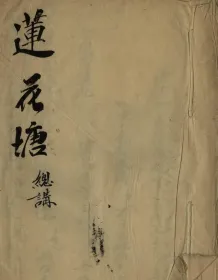 蓮花塘
總講